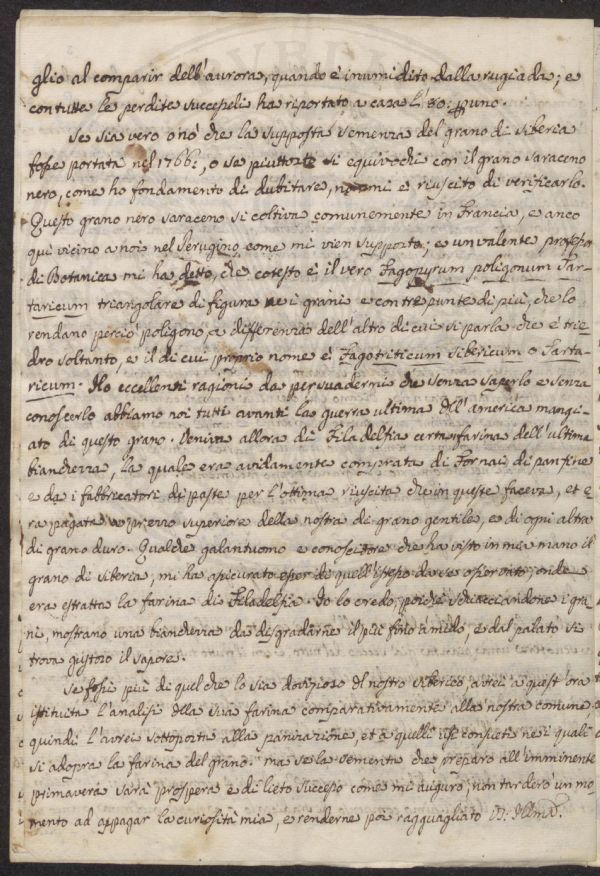 glio al comparir dell'aurora, quando è inumidito dalla rugiada; e
con tutte le perdite succeseli ha riportato a casa l'80: p uno.
Se sia vero o nò che la supposta semenza del grano di Siberia
fosse portata nel 1766:, o se piuttosto si equivochi con il grano saraceno
nero, come ho fondamento di dubitare, non mi è riuscito di verificarlo.
Questo grano nero saraceno si coltiva comunemente in Francia, e anco
qui vicino a noi nel Perugino come mi vien supposto; e un valente profess.
di Botanica mi ha detto, che cotesto è il vero Fagopyrum poligonum Tar-
taricum triangolare di figura ne i grani e con tre punte di più, che lo
rendano perciò poligono, a differenza dell'altro di cui si parla che è trie-
dro soltanto, e il di cui proprio nome è Fagotriticum Sibericum o Tarta-
ricum. Ho eccellenti ragioni da persuadermi che senza saperlo e senza
conoscerlo abbiamo noi tutti avanti la guerra ultima dell'america mangi-
ato di questo grano. Veniva allora di Filadelfia certa farina dell'ultima
bianchezza, la quale era avidamente comprata di Fornai di pan fine
e da i fabbricatori di paste per l'ottima riuscita che in queste faceva, et e-
ra pagata a prezzo superiore della nostra di grano gentile, e di ogni altra
di grano duro. Qualche galantuomo e conoscitore che ha visto in mia mano il
grano di Siberia, mi ha assicurato esser di quell'istesso da se osservato, onde
era estratta la farina di Filadelfia. Io lo credo, poiche schiacciandone i gra-
ni, mostrano una bianchezza da disgradarne il più fino amido, e dal palato si
trova gustoso il sapore.
Se fossi più di quel che lo sia dovizioso del nostro siberico, avrei a quest'ora
istituita l'analisi della sua farina comparativamente alla nostra comune
quindi l'avrei sottoposta alla panizazione, et a quelli usi consueti nei quali
si adopra la farina del grano: ma se la sementa che preparo all'imminente
primavera sarà prospera e di lieto successo come mi auguro, non tarderò un mo-
mento ad appagar la curiosità mia, e renderne poi ragguagliato